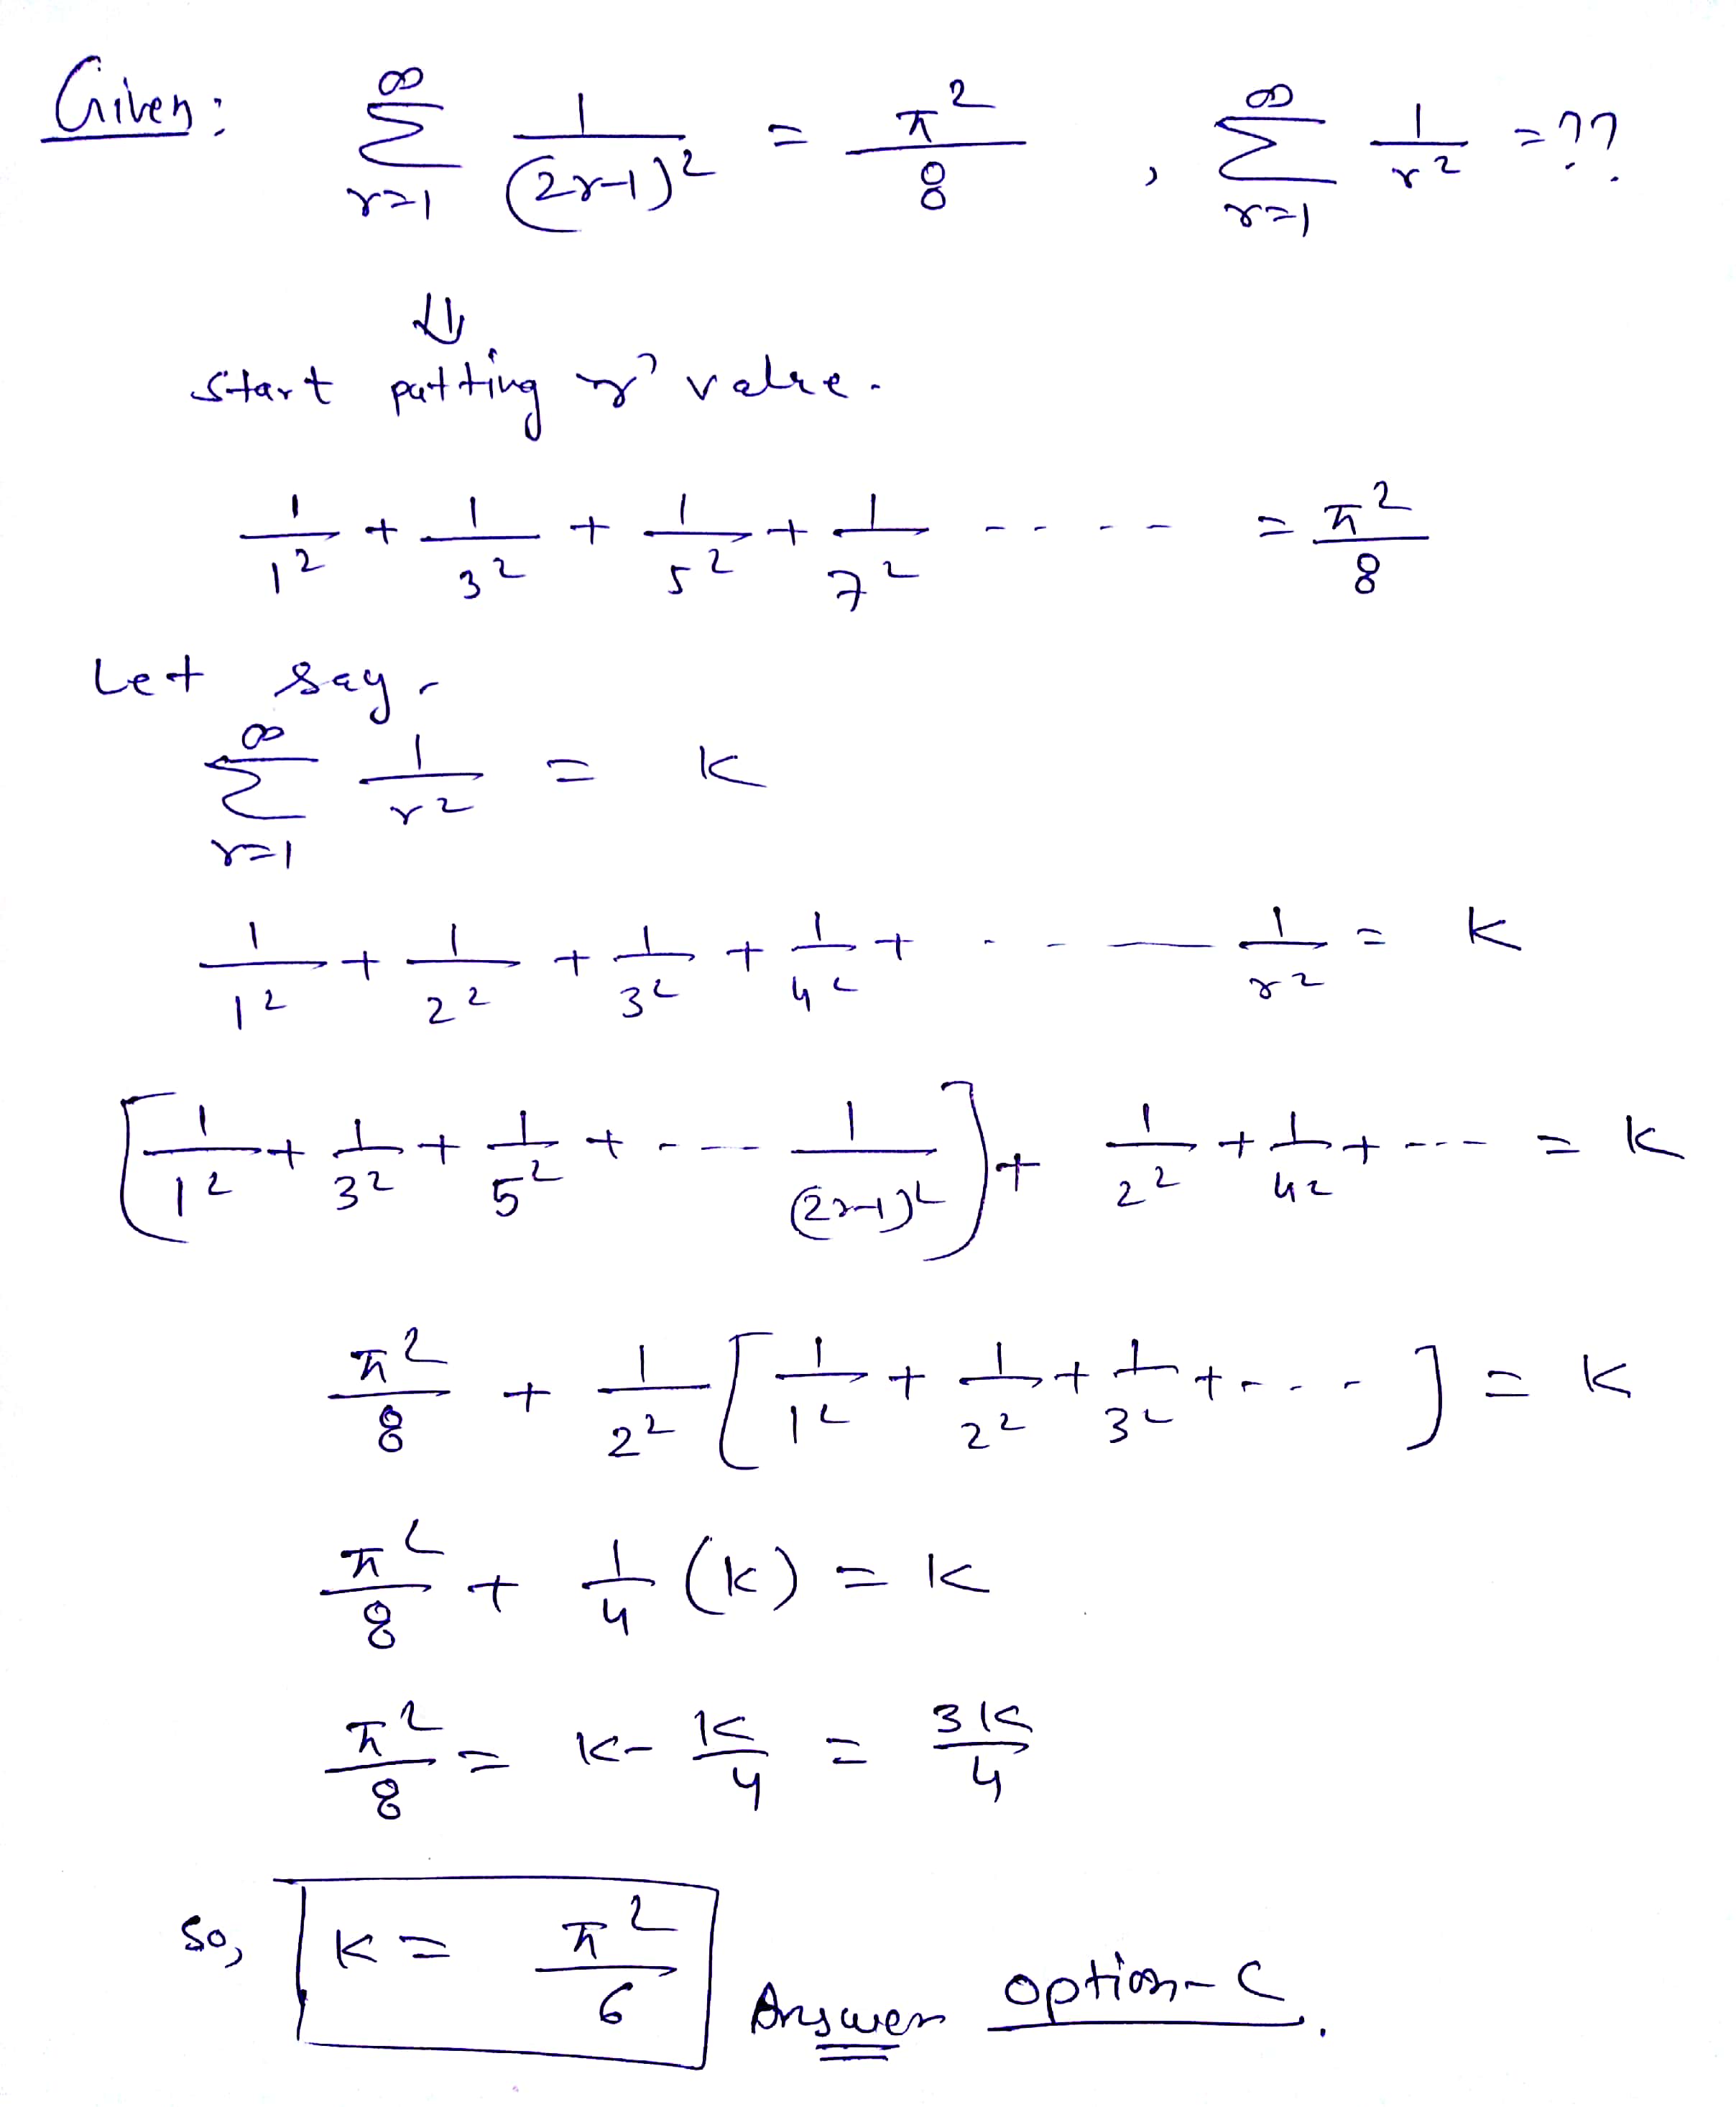 Given: ∞∑r=1 1/(2r-1)² = π²/8 , ∞∑r=1 1/r² = ??
⇓
start putting r' value.
1/1² + 1/3² + 1/5² + 1/7² - - - - = π²/8
Let say,
∞∑r=1 1/r² = K
1/1² + 1/2² + 1/3² + 1/4² + - - — 1/r² = K
[1/1² + 1/3² + 1/5² + - -- 1/(2r-1)²] + 1/2² + 1/4² + ---- = K
π²/8 + 1/2² [1/1² + 1/2² + 1/3² + - - - -] = K
π²/8 + 1/4 (K) = K
π²/8 = K - K/4 = 3K/4
So, K = π²/6 Answer option-C.